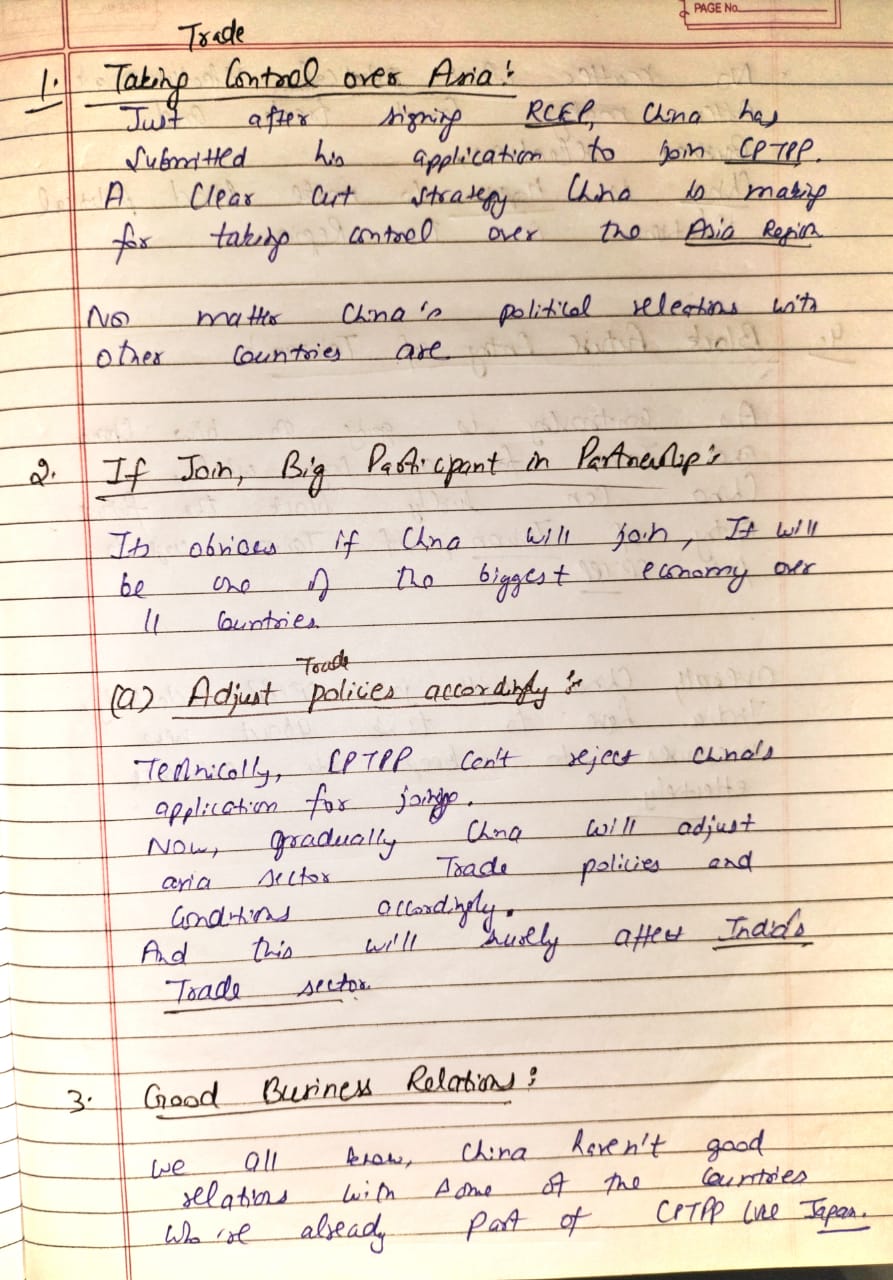 PAGE No.
Trade
1. Taking Control over Asia:
Just after signing RCEP, China has
submitted his application to join CPTPP.
A Clear Cut strategy China is making
for taking control over the Asia Region
No matter China's political relections with
other Countries are.
2. If Join, Big Participant in Partnership:
Its obvious if China will join, It will
be one of the biggest economy over
11 Countries.
Trade
(a) Adjust policies accordingly:
Technically, CPTPP Can't reject China's
application for joining.
Now, gradually China will adjust
asia sector Trade policies and
Conditions accordingly.
And this will surely affect India's
Trade sector.
3. Good Business Relations:
We all know, China haven't good
relations with some of the Countries
Who're already part of CPTPP like Japan.